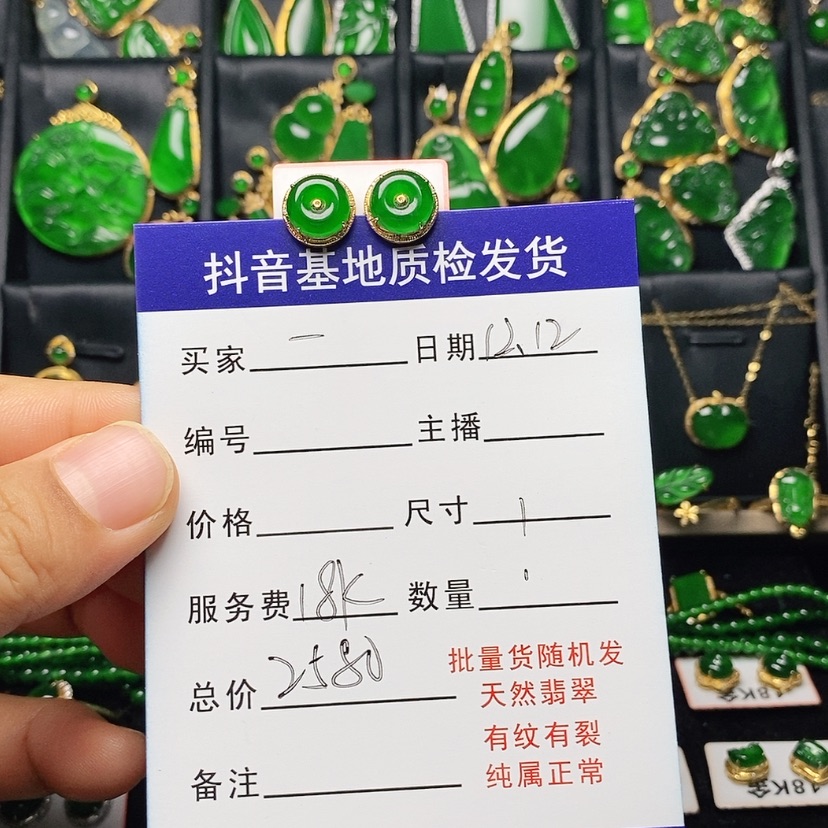 抖音基地质检发货
买家 一 日期 12.12
编号 主播
价格 尺寸 1
服务费 18K 数量
总价 2580
批量货随机发
天然翡翠
有纹有裂
纯属正常
备注
18K金
18K金